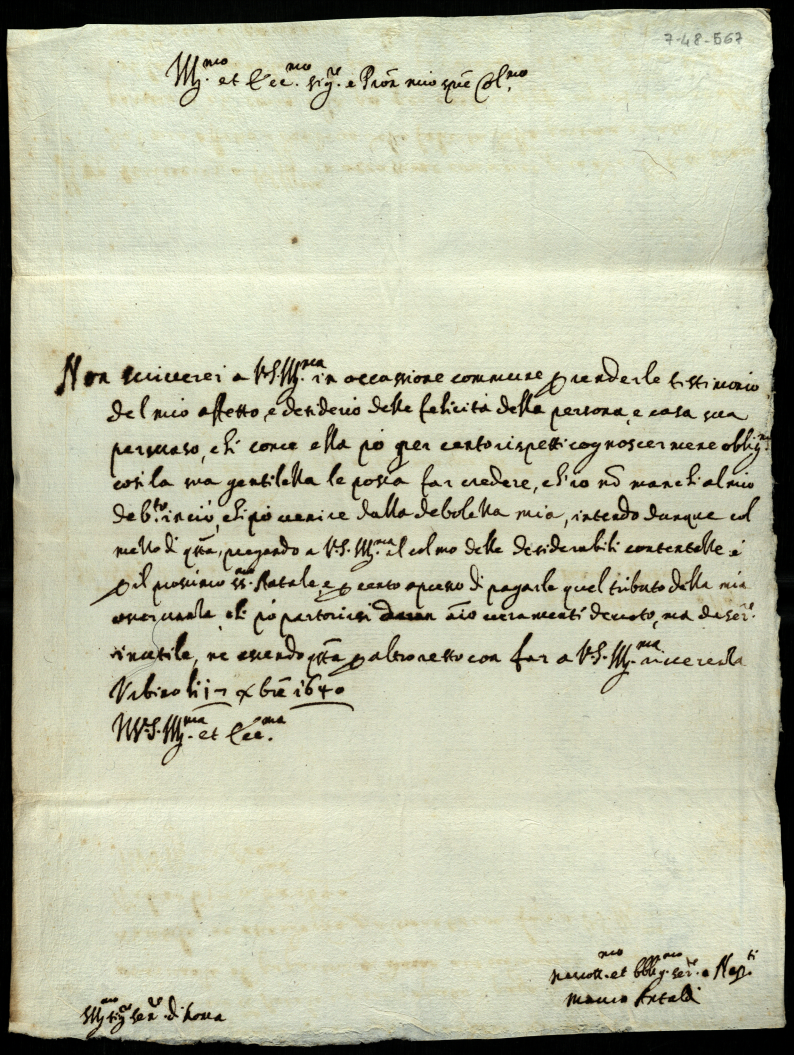 7-48-567
Ill.mo et Ecc.mo sig.re e Pron mio sre Col.mo
Non scriverei a V.S. Ill.ma in occassione commune p renderle testimonio
del mio affetto, e desiderio delle felicità della persona, e casa sua
persuaso, che come ella pò per cento rispetti cognoscermene oblig.mo
così la sua gentilezza le possa far credere, ch'io nõ manchi al mio
deb.to in ciò, che pò venire dalla debolezza mia, intendo dunque col
mezzo di qsta, pregando a V.S. Ill.ma il colmo delle desiderabili contentezze
p il prossimo ss.mo Natale, e p cento apresso di pagarle quel tributo della mia
osservanza, che pò partorirsi da un aĩo veramente devoto, ma da ser.re
inutile, ne essendo qsta p altro resto con far a V.S. Ill.ma riverenza
Urbino li 17 Xbre 1640
D V.S. Ill.ma et Ecc.ma
et obblig. ser.re e Nep.ti
Sig.r di Rossa